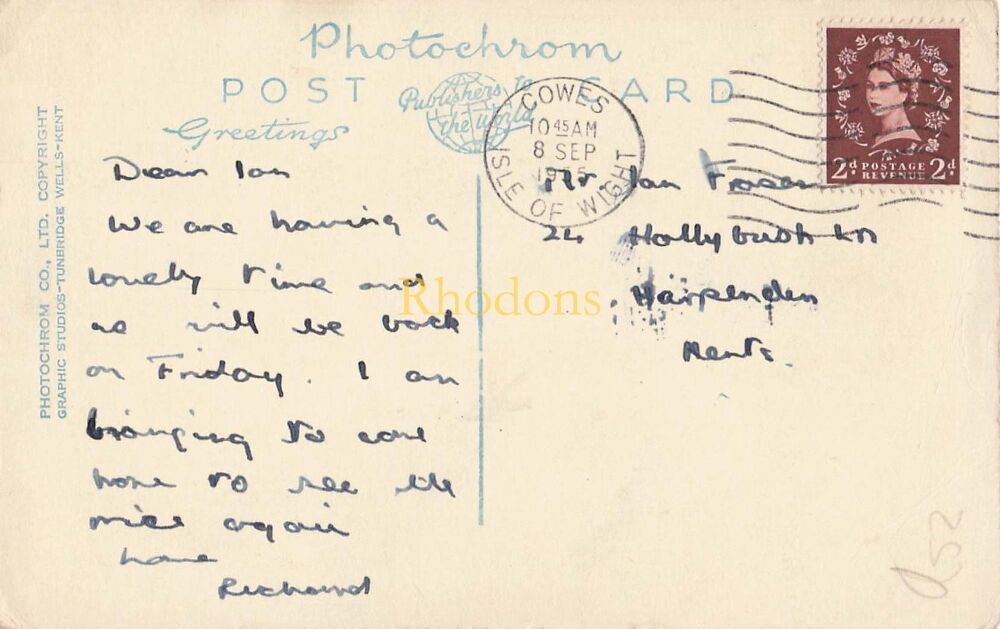 Photochrom
POST CARD
Publishers to the World
Greetings
PHOTOCHROM CO., LTD. COPYRIGHT
GRAPHIC STUDIOS-TUNBRIDGE WELLS-KENT
COWES
10 45 AM
8 SEP
ISLE OF WIGHT
2d POSTAGE 2d
REVENUE
Dear Ian
We are having a
lovely time and
we will be back
on Friday. I am
to come
home to see the
mice again
love
Richard
Mr Ian Fraser
24 Hollybush Ln
Harpenden
Herts.
Rhodons
52